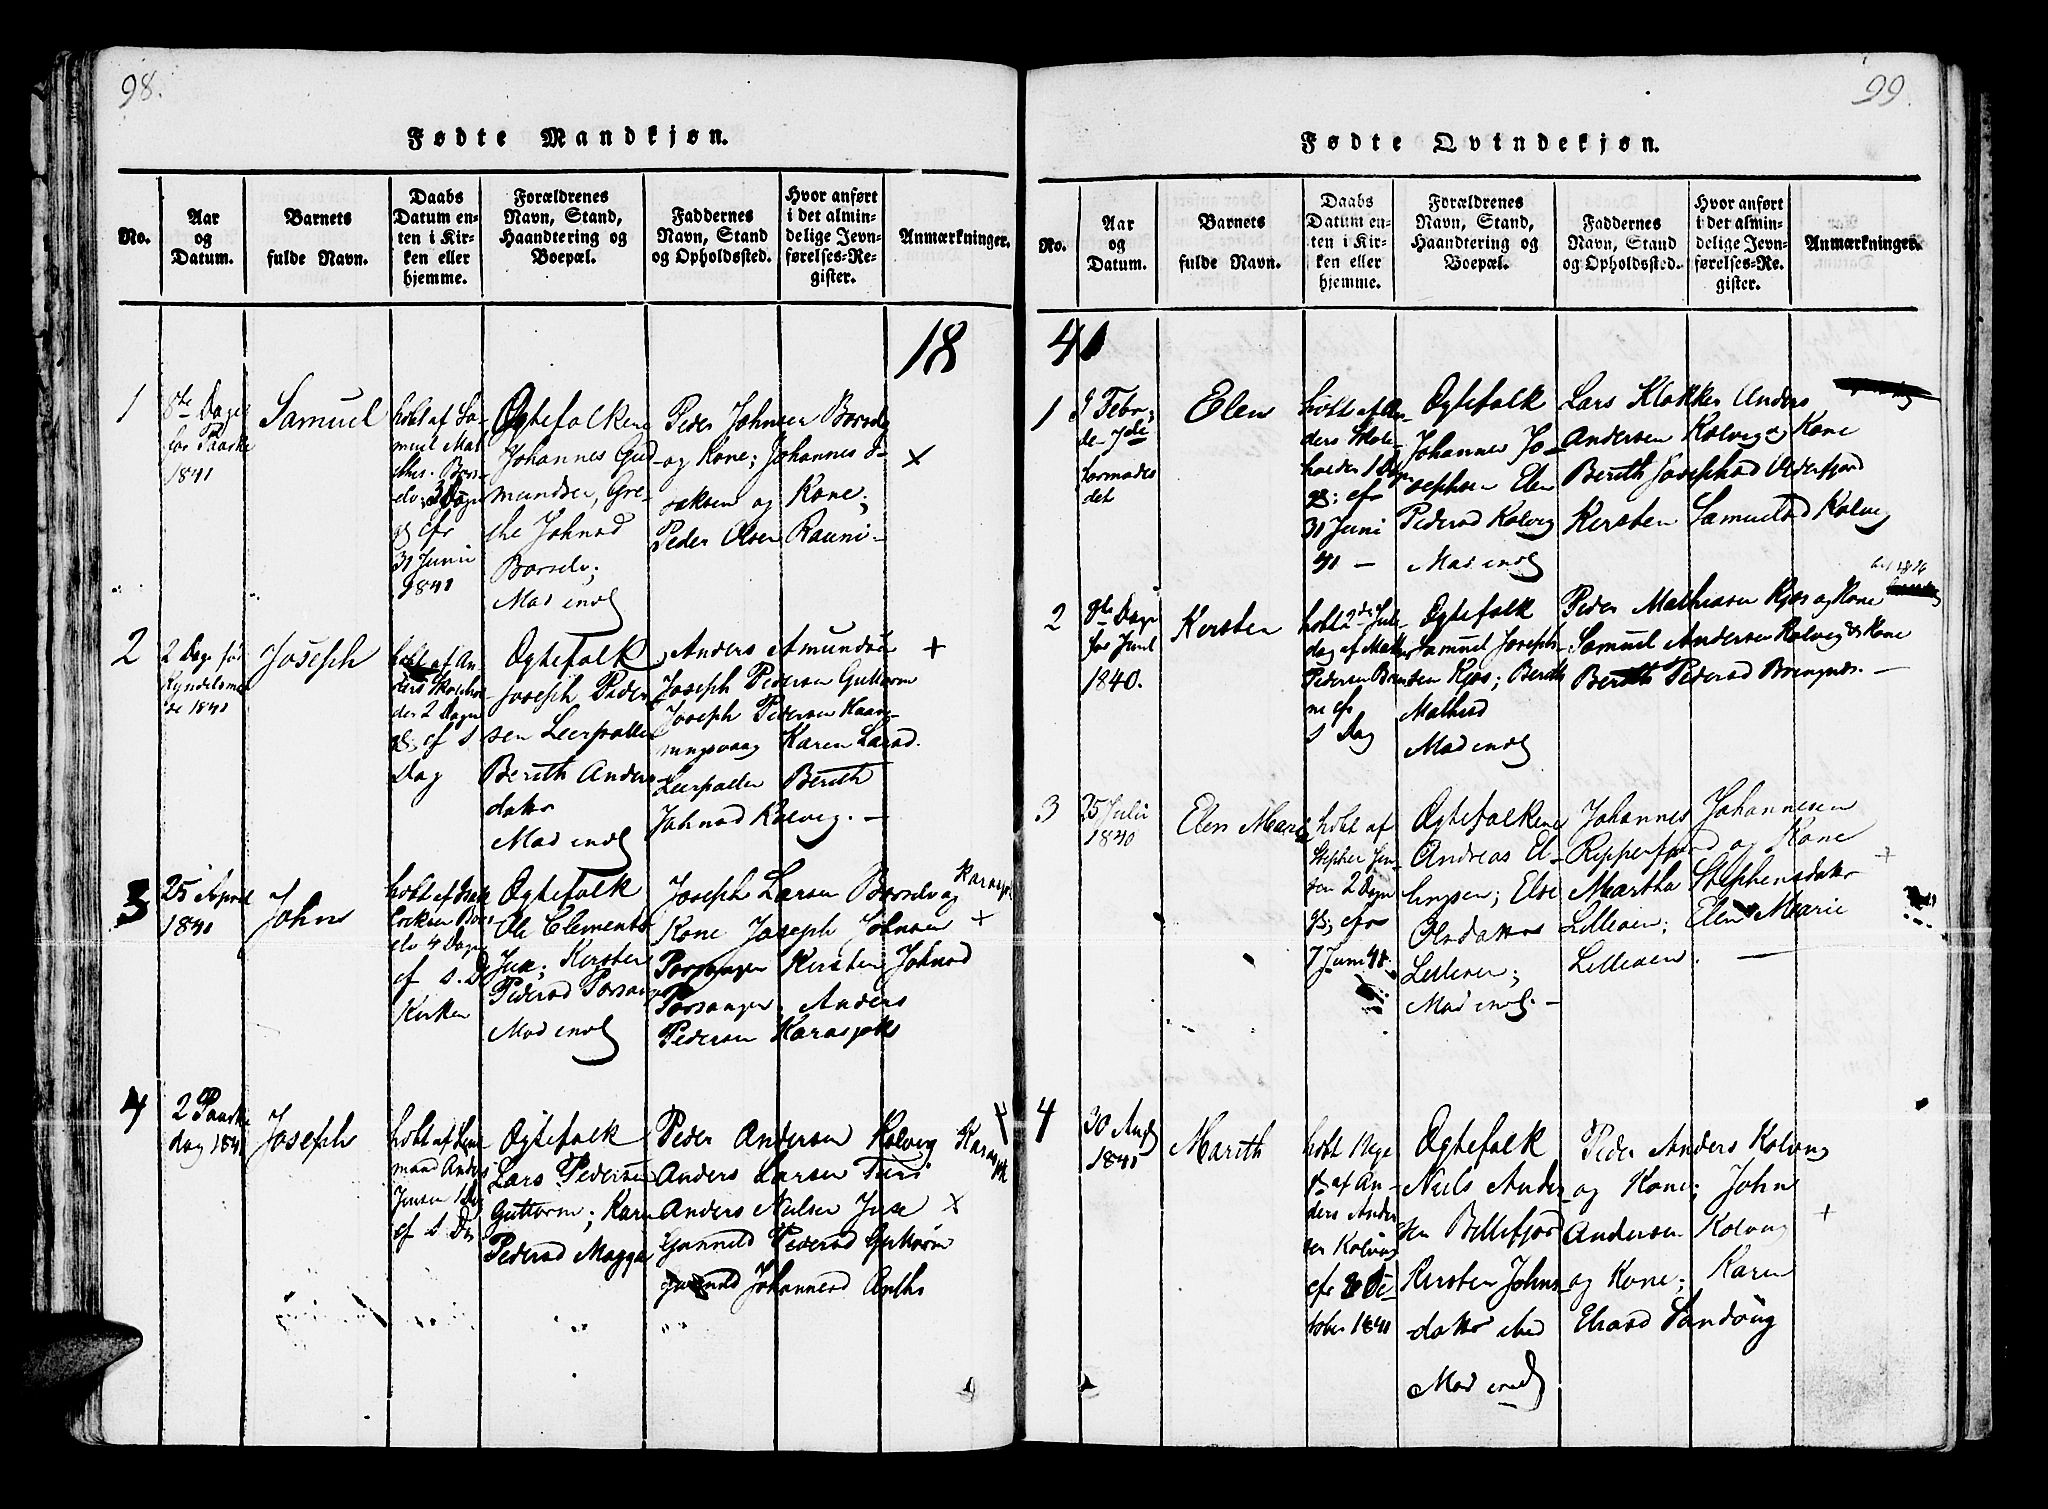 98.
Fødte Mandkjøn.
No.
Aar
og
Datum.
Barnets
fulde Navn.
Daabs
Datum en-
ten i Kir-
ken eller
hjemme.
Forældrenes
Navn, Stand,
Haandtering og
Boepæl.
Faddernes
Navn, Stand
og Opholdssted.
Hvor anført
i det almin-
delige Jevn-
førelses-Re-
gister.
Anmærkninger.
18
1
8te Dage
før Paaske
1841
Samuel
hdbt af Sa-
muel Mat
3 Dage
31 Junii
1841
Ægtefolkene
Johannes Gud
mundsen, Gre-
the Johnsd
Borselv;
Mod indl
Peder Johnsen Borselv
og Kone; Johannes I-
saksen og Kone;
Peder Olsen Rauni-
×
2
2 Dage før
Kyndelsmes
se 1841
Joseph
hdbt af An-
ders Skolehol
der 2 Dage
gl; cf s
Dag
Ægtefolk
Joseph Peder
sen Leerpollen
Berith Anders
datter
Mod indl
Anders Amundsen
Joseph Pedersen Guttorm
Joseph Pedersen Kaar-
ningsvaag Karen Larsd.
Leerpollen Berith
Johnsd Kolvig. —
+
3
25 April
1841
John
hdbt af Isak
Eriksen Bors
elv 4 Dage
cf s. D.
Kirken
Ægtefolk
Ole Clements
Jux; Kersten
Pedersd Porsang
Mod indl
Joseph Larsen Borselv og
Kone Joseph Johnsen
Porsanger Kirsten Johnsd
Porsanger; Anders
Pedersen Karasjoks
Karasjok
+
4
2 Paaske
dag 1841
Joseph
hdbt af Lens
mand Anders
Jensen 1 Dag
cf s D
Ægtefolk
Lars Pedersen
Guttorm; Karen
Pedersd Magga
Peder Andersen Kolvig
Anders Larsen Turi
Anders Nielsen Juxe
Gunnild Pedersd Guttorm
Gunnild Johannesd Anths
Karasjok
×
99.
Fødte Qvindekjøn.
No.
Aar
og
Datum.
Barnets
fulde Navn.
Daabs
Datum en-
ten i Kir-
ken eller
hjemme.
Forældrenes
Navn, Stand,
Haandtering og
Boepæl.
Faddernes
Navn, Stand
og Opholdssted.
Hvor anført
i det almin-
delige Jevn-
førelses-Re-
gister.
Anmærkninger.
41
1
9 Febr;
Elen
hdbt af An-
ders Skole-
holder 1 Dag
gl; cfr
31 Juni
41 —
Ægtefolk
Johannes Jo-
sephsen Elen
Pedersd Kolvig
Mod indl
Lars Klokker Anders
Andersen Kolvig og Kone
Berith Josephsd Olderfjord
Kersten Samuelsd Kolvig
2
8te Dage
før Juul
1840.
Kersten
hdbt 2den Jule
dag af Mathis
Pedersen
cfr
s Dag
Ægtefolk
Samuel Joseph-
sen Kjøs; Berith
Mathisd
Mod indl
Peder Mathisen Kjøs og Kone
Samuel Andersen Kolvig & Kone
Berith Pedersd —
3
25 Julii
1840
Elen Marie
hdbt af
Stephen Jen
sen 2 Dage
gl; cfr
7 Juni 41.
Ægtefolkene
Andreas El-
lingsen; Else
Olsdatter
Lilleven;
Mod indl. —
Johannes Johannesen
Ripperfjord og Kone
Martha Stephensdatter
Lilleven; Elen Marie
Lilleven. —
+
4
30 Aug
1841
Marith
hdbt 1 Uge
gl af An-
ders Ander
sen Kolvig
cfr 8 Oc-
tober 1841
Ægtefolk
Niels Ander
sen Billefjord
Kersten Johns
datter ibid
Mod indl
Peder Anders Kolvig
og Kone; John
Andersen Kolvig
og Kone; Karen
Elsasd Sandvig
+